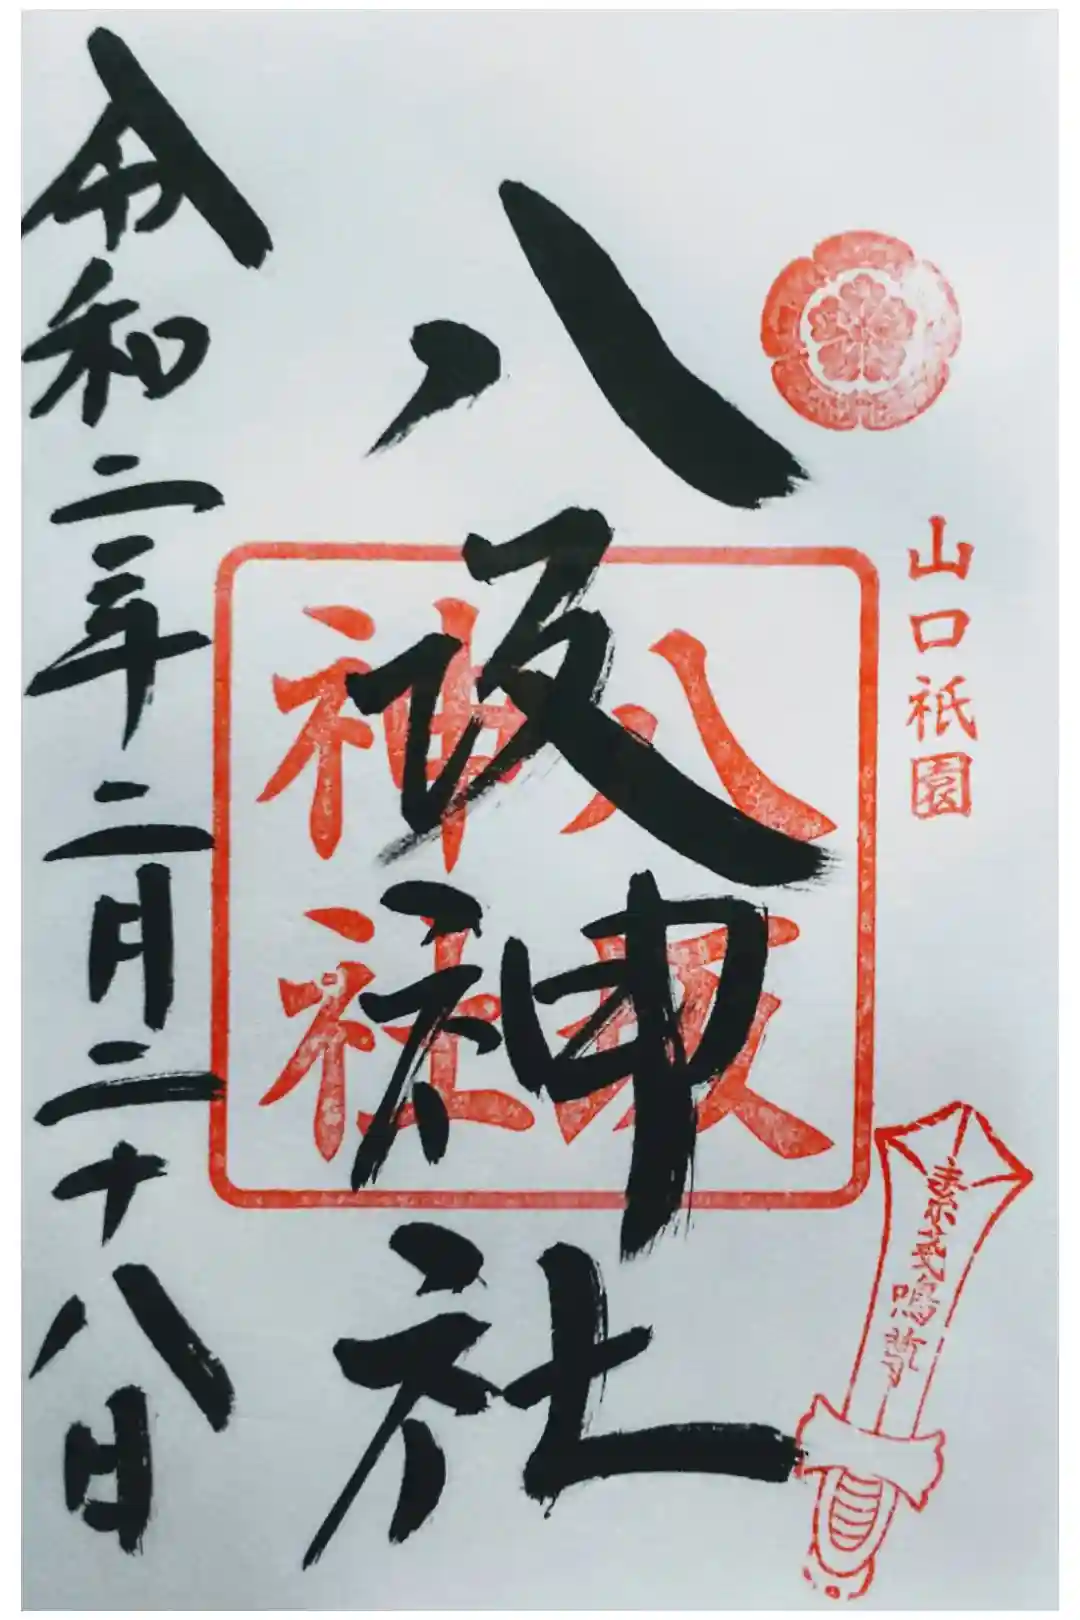 山口祇園
八坂神社
八坂
神社
令和二年二月二十八日